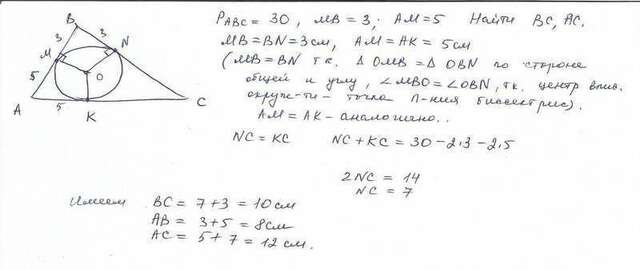 P ABC = 30, MB = 3; AM = 5 Найти BC, AC.
MB = BN = 3 см, AM = AK = 5 см
(MB = BN т.к. Δ OMB = Δ OBN по стороне
общей и углу, ∠MBO = ∠OBN, т.к. центр впис.
окруж-ти – точка п-ния биссектрис).
AM = AK – аналогично.
NC = KC NC + KC = 30 – 2·3 – 2·5
2NC = 14
NC = 7
Имеем BC = 7 + 3 = 10 см
AB = 3 + 5 = 8 см
AC = 5 + 7 = 12 см.
B
3 3
M N
5 O
A 5 K C